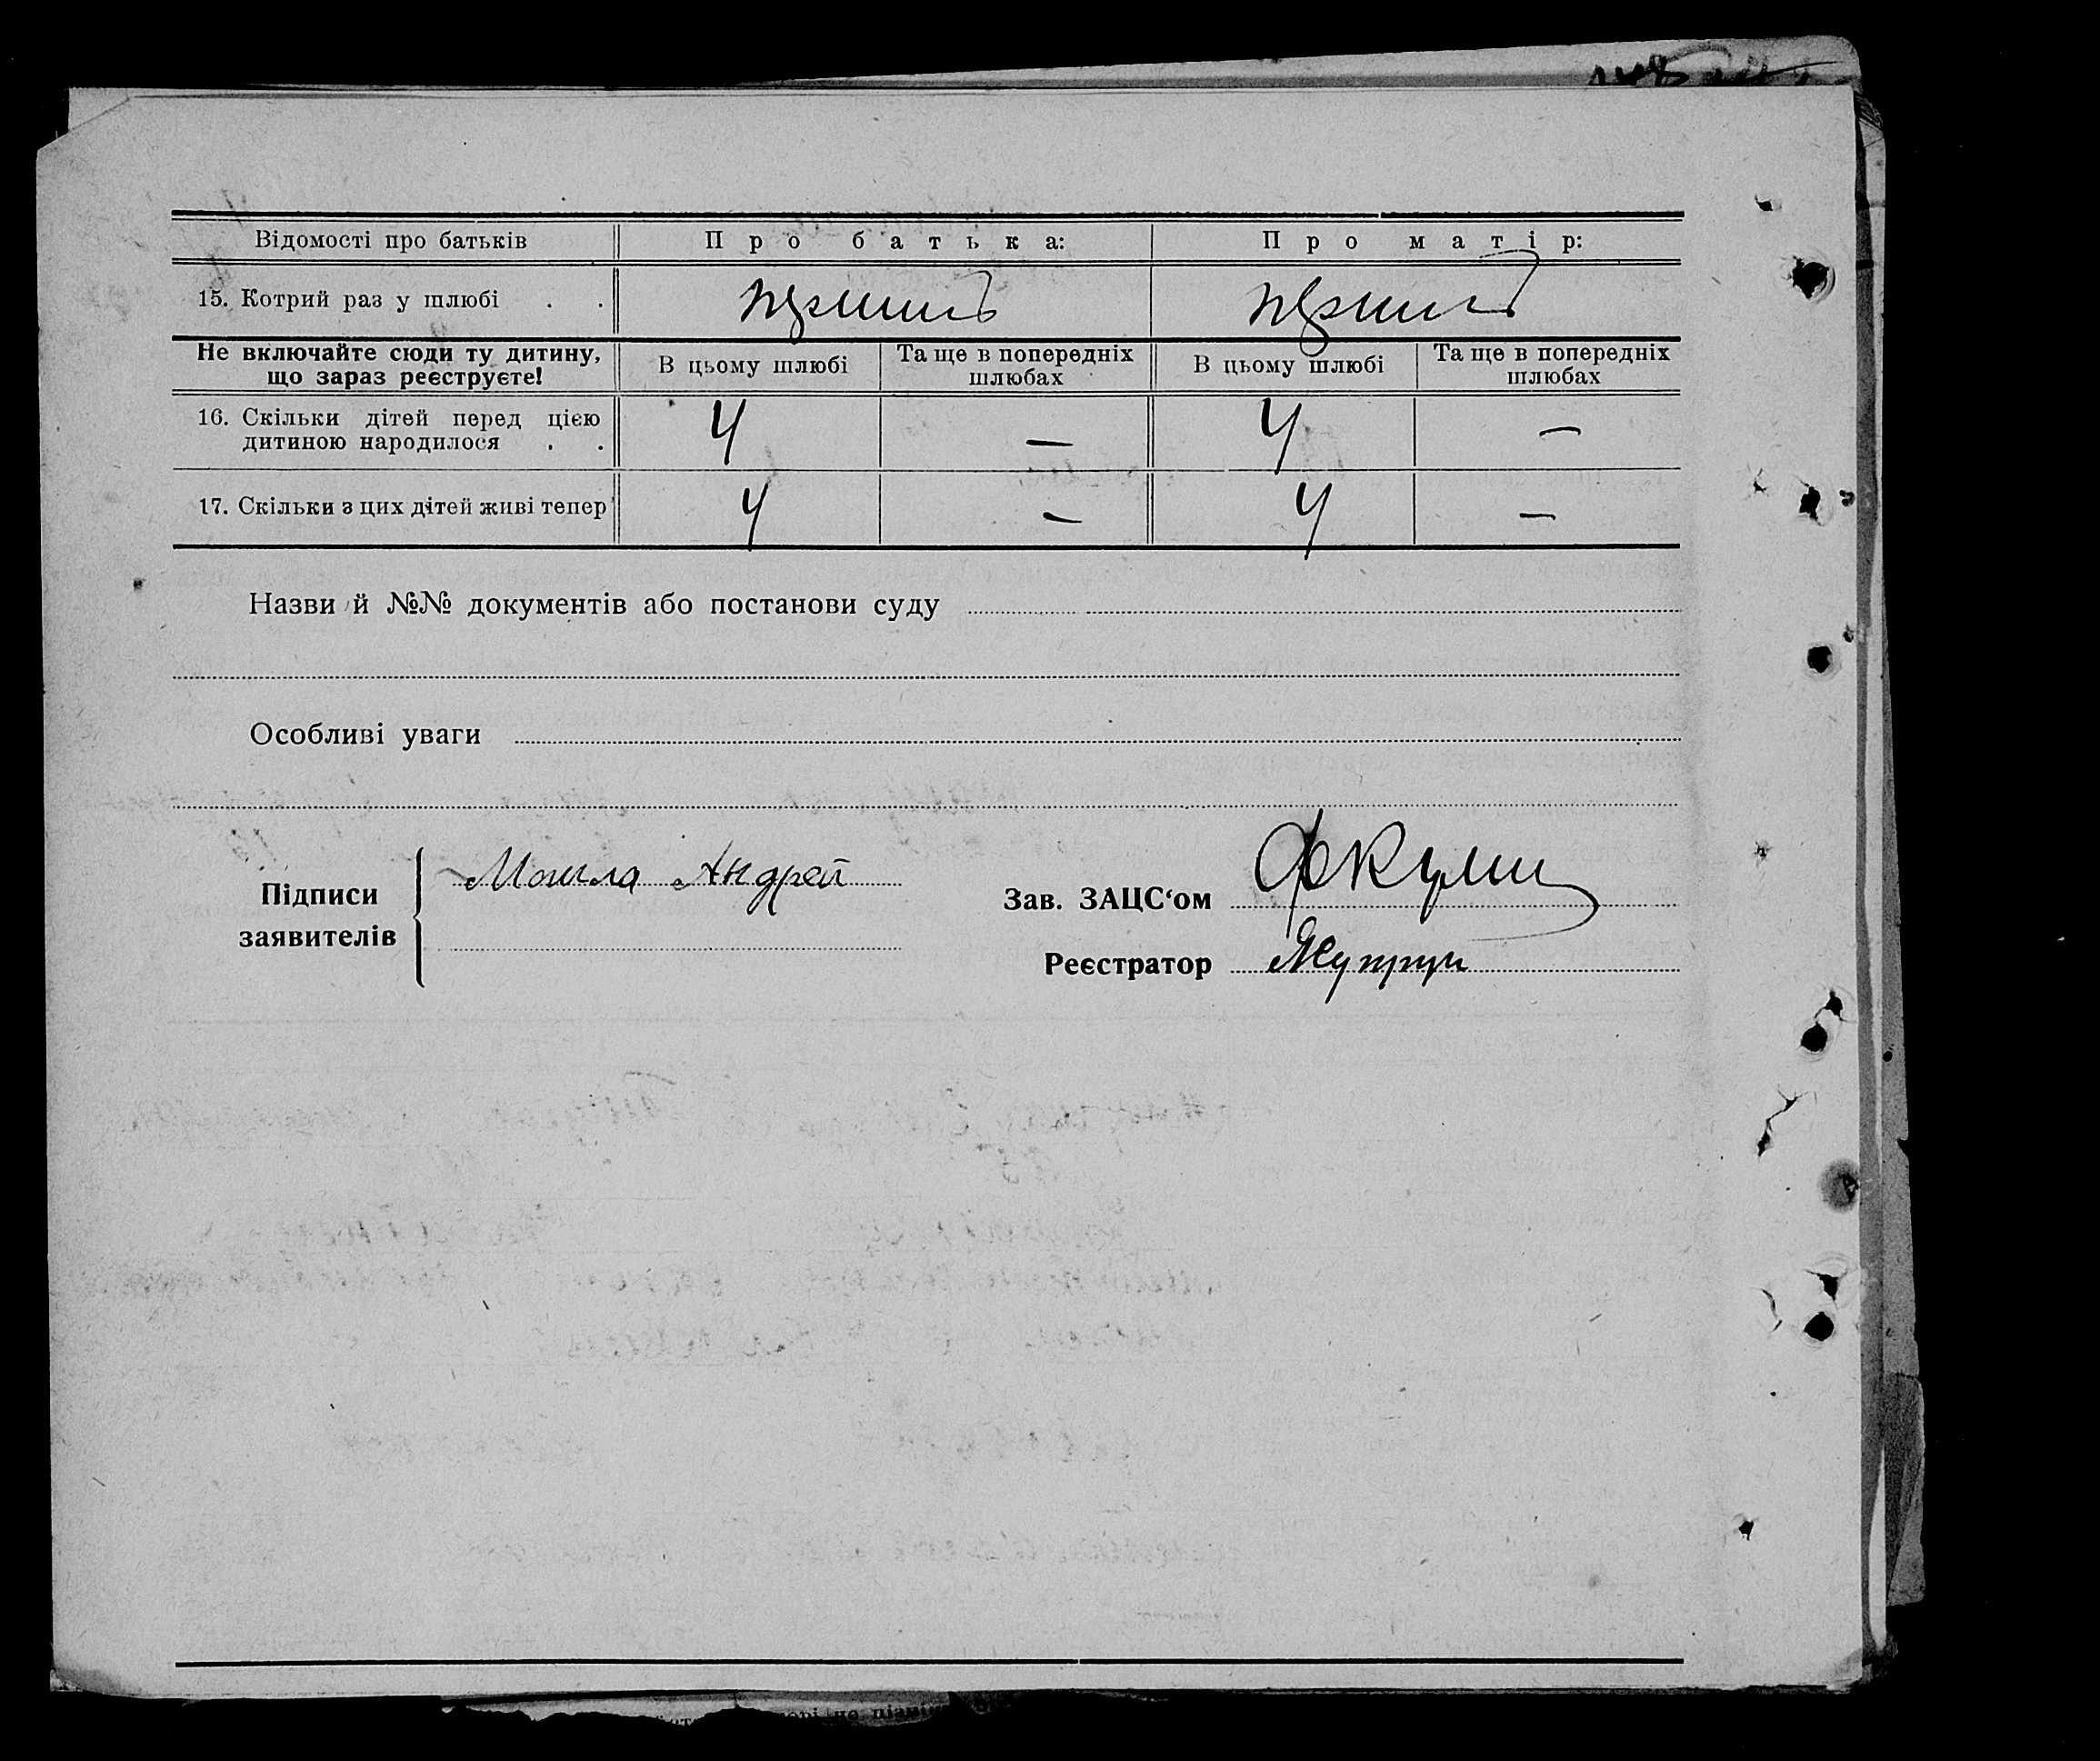 Відомості про батьків Про батька: Про матір:
15. Котрий раз у шлюбі . . перший перший
Не включайте сюди ту дитину, що зараз реєструєте! В цьому шлюбі Та ще в попередніх шлюбах В цьому шлюбі Та ще в попередніх шлюбах
16. Скільки дітей перед цією
дитиною народилося . . 4 — 4 —
17. Скільки з цих дітей живі тепер 4 — 4 —
Назви й №№ документів або постанови суду
Особливі уваги
Підписи заявителів Могила Андрей
Зав. ЗАЦС‘ом
Реєстратор